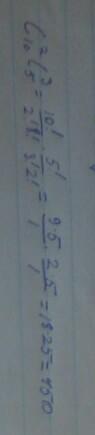 C₁₀² C₅³ = 10!/2!8! · 5!/3!2! = 9·5/1 · 2·5/1 = 18·25 = 450